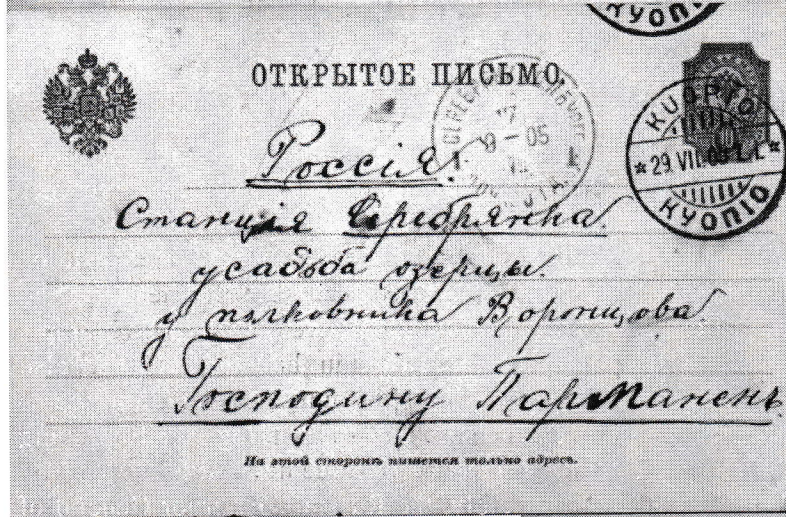 КУОПІО
ОТКРЫТОЕ ПИСЬМО.
9 - 05
KUOPIO
29.VII.05 I.L.
КУОПІО
Россія.
Станція Серебрянка.
усадьба озерцы.
у полковника Воронцова
Господину Парманенъ
На этой сторонѣ пишется только адресъ.